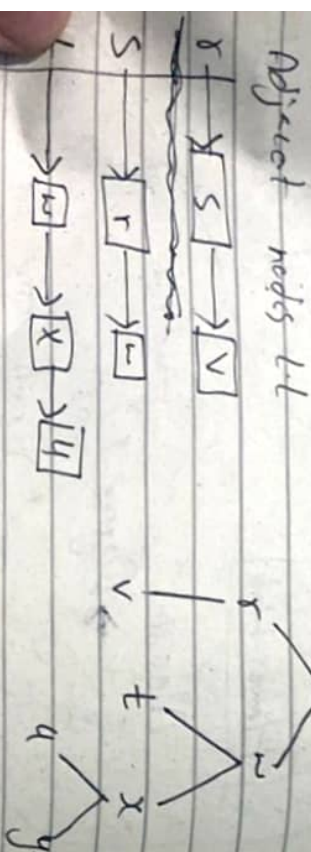 Adjacent nodes LL
r → s → v
s → r → w
w → x → y
r w
v t x
u y